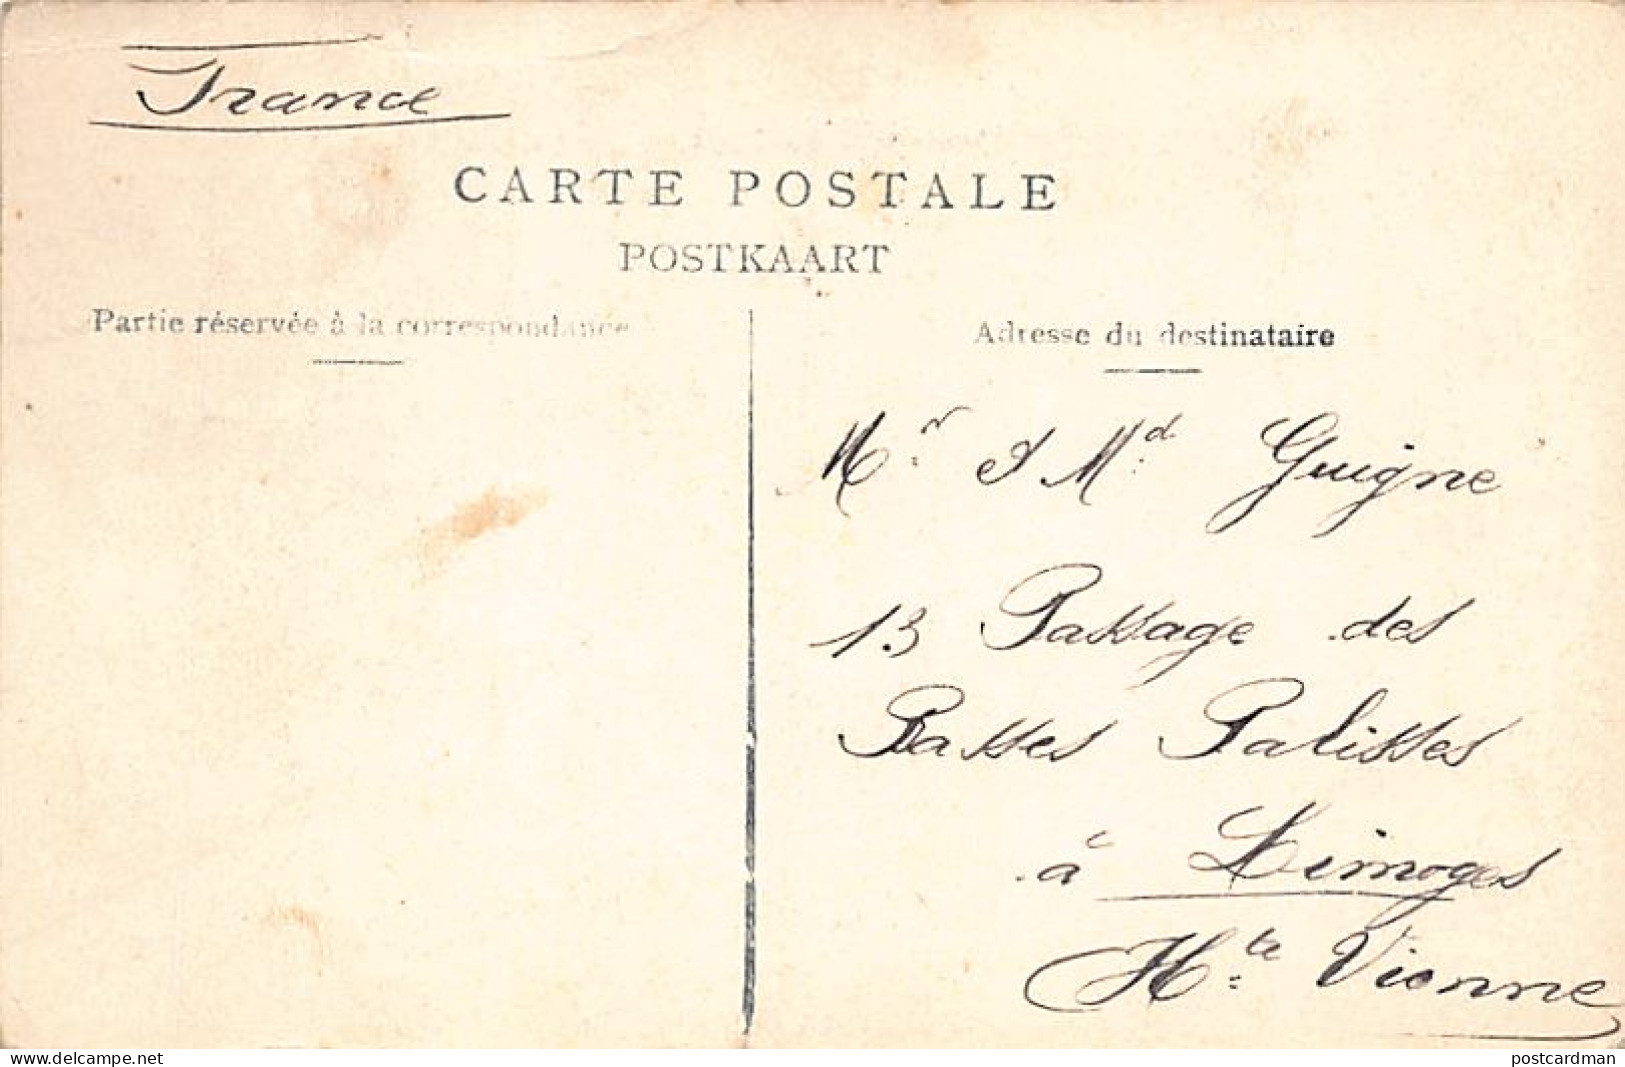 France
CARTE POSTALE
POSTKAART
Partie réservée à la correspondance
Adresse du destinataire
Mr et Md Guigne
13 Passage des
Basses Palisses
à Limoges
Hte Vienne
www.delcampe.net
postcardman